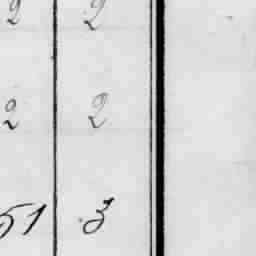 2 2
2 2
51 3